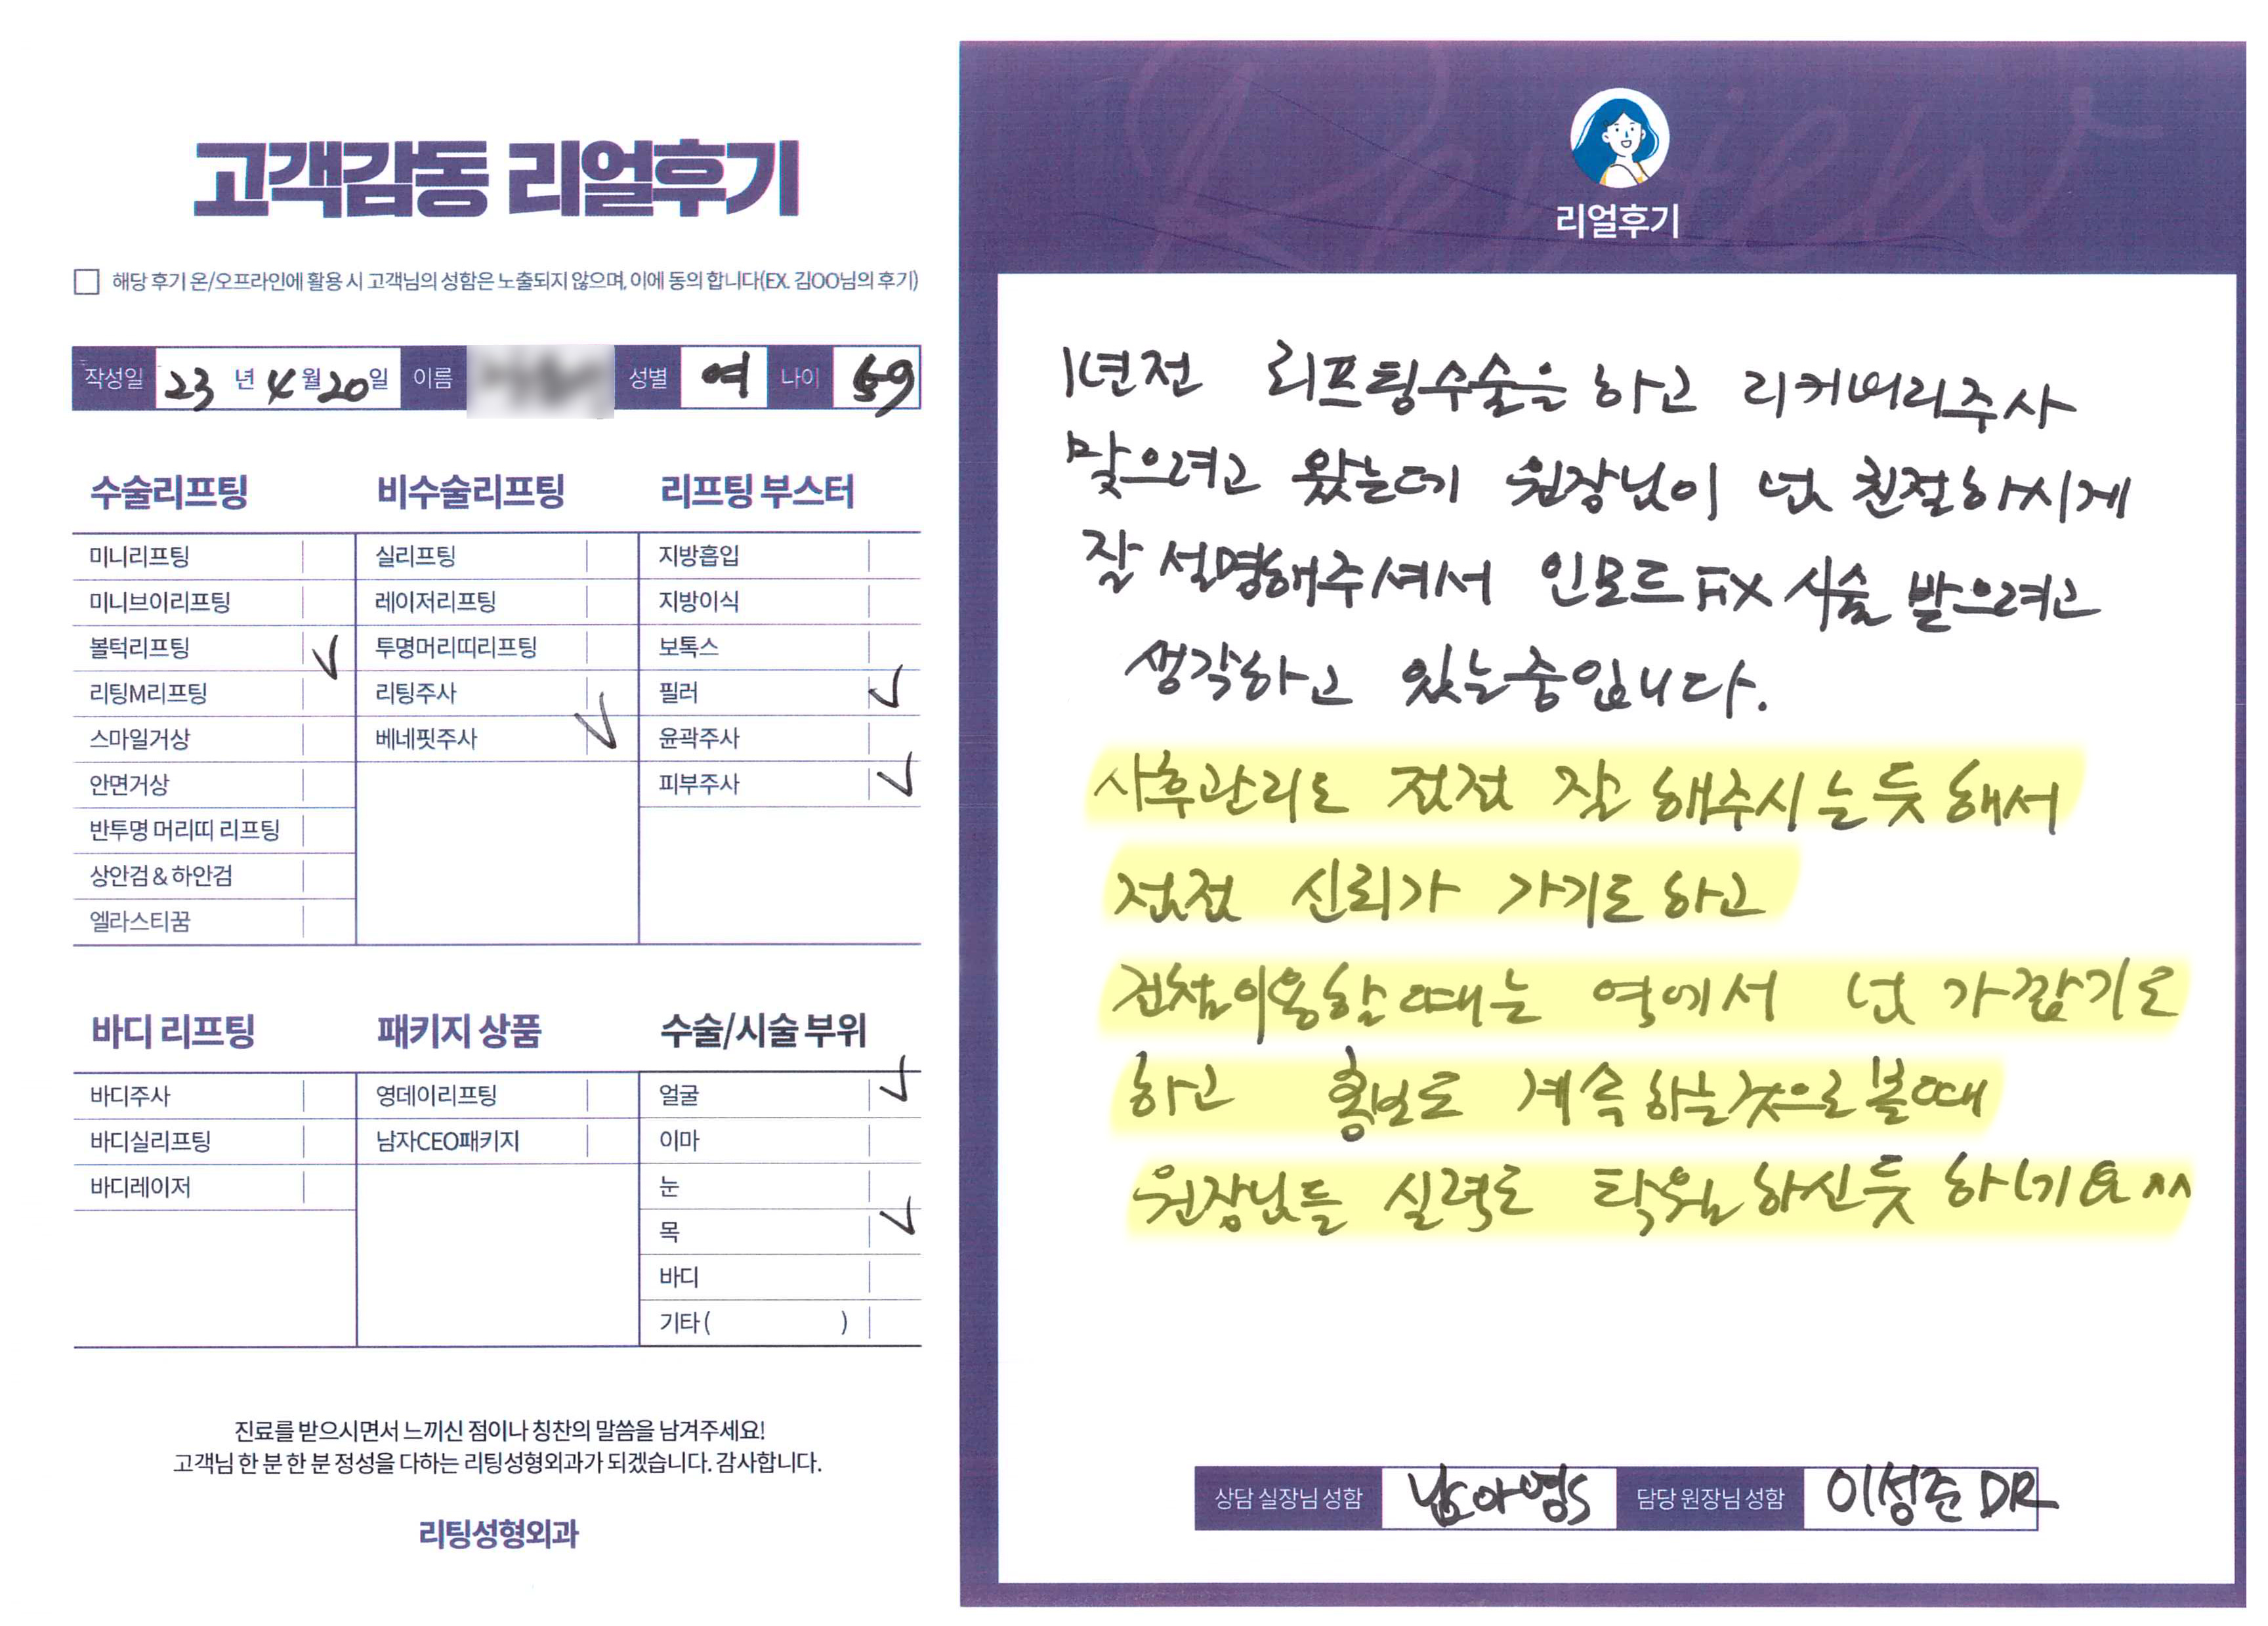 고객감동 리얼후기
해당 후기 온/오프라인에 활용 시 고객님의 성함은 노출되지 않으며, 이에 동의 합니다(EX. 김OO님의 후기)
작성일 23년 4월 20일 이름 성별 여 나이 59
수술리프팅
미니리프팅
미니브이리프팅
볼턱리프팅
리팅M리프팅
스마일거상
안면거상
반투명 머리띠 리프팅
상안검 & 하안검
엘라스티꿈
비수술리프팅
실리프팅
레이저리프팅
투명머리띠리프팅
리팅주사
베네핏주사
리프팅 부스터
지방흡입
지방이식
보톡스
필러
윤곽주사
피부주사
바디 리프팅
바디주사
바디실리프팅
바디레이저
패키지 상품
영데이리프팅
남자CEO패키지
수술/시술 부위
얼굴
이마
눈
목
바디
기타 ( )
진료를 받으시면서 느끼신 점이나 칭찬의 말씀을 남겨주세요!
고객님 한 분 한 분 정성을 다하는 리팅성형외과가 되겠습니다. 감사합니다.
리팅성형외과
Review
리얼후기
1년전 리프팅수술을 하고 리커버리주사
맞으려고 왔는데 원장님이 넘 친절하시게
잘 설명해주셔서 인모드 FX 시술 받으려고
생각하고 있는중입니다.
사후관리도 점점 잘 해주시는듯 해서
점점 신뢰가 가기도 하고
전철이용할때는 역에서 넘 가깝기도
하고 홍보도 계속하는것으로 볼때
원장님들 실력도 탁월하신듯 하네요 ^^
상담 실장님 성함 남아영S 담당 원장님 성함 이성준 DR